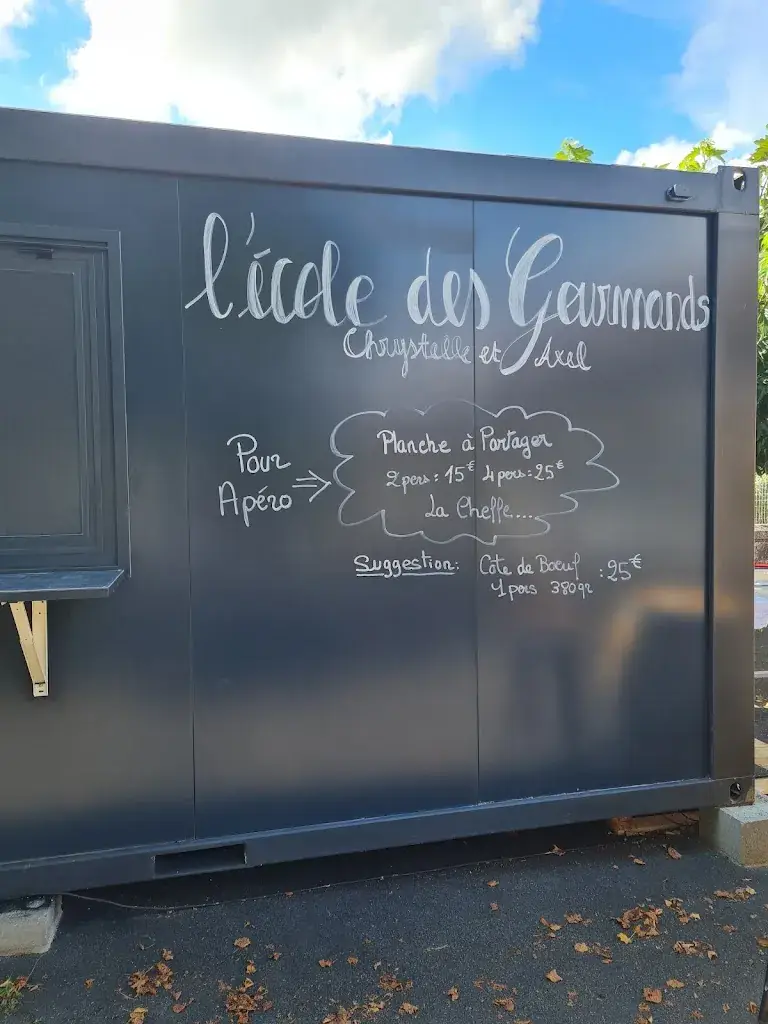 l'école des Gourmands
Chrystelle et Axel
Pour
Apéro
Planche à Partager
2 pers : 15€ 4 pers : 25€
La Cheffe....
Suggestion : Côte de Boeuf : 25€
1 pers 380gr